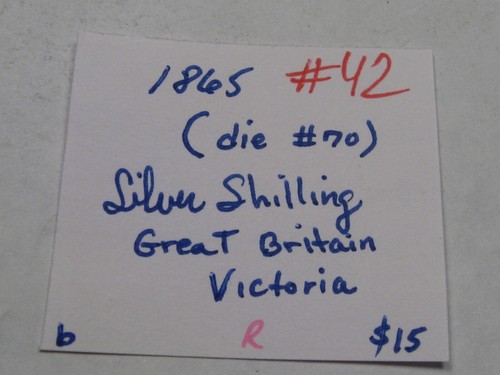 1865 #42
(die #70)
Silver Shilling
Great Britain
Victoria
b R $15